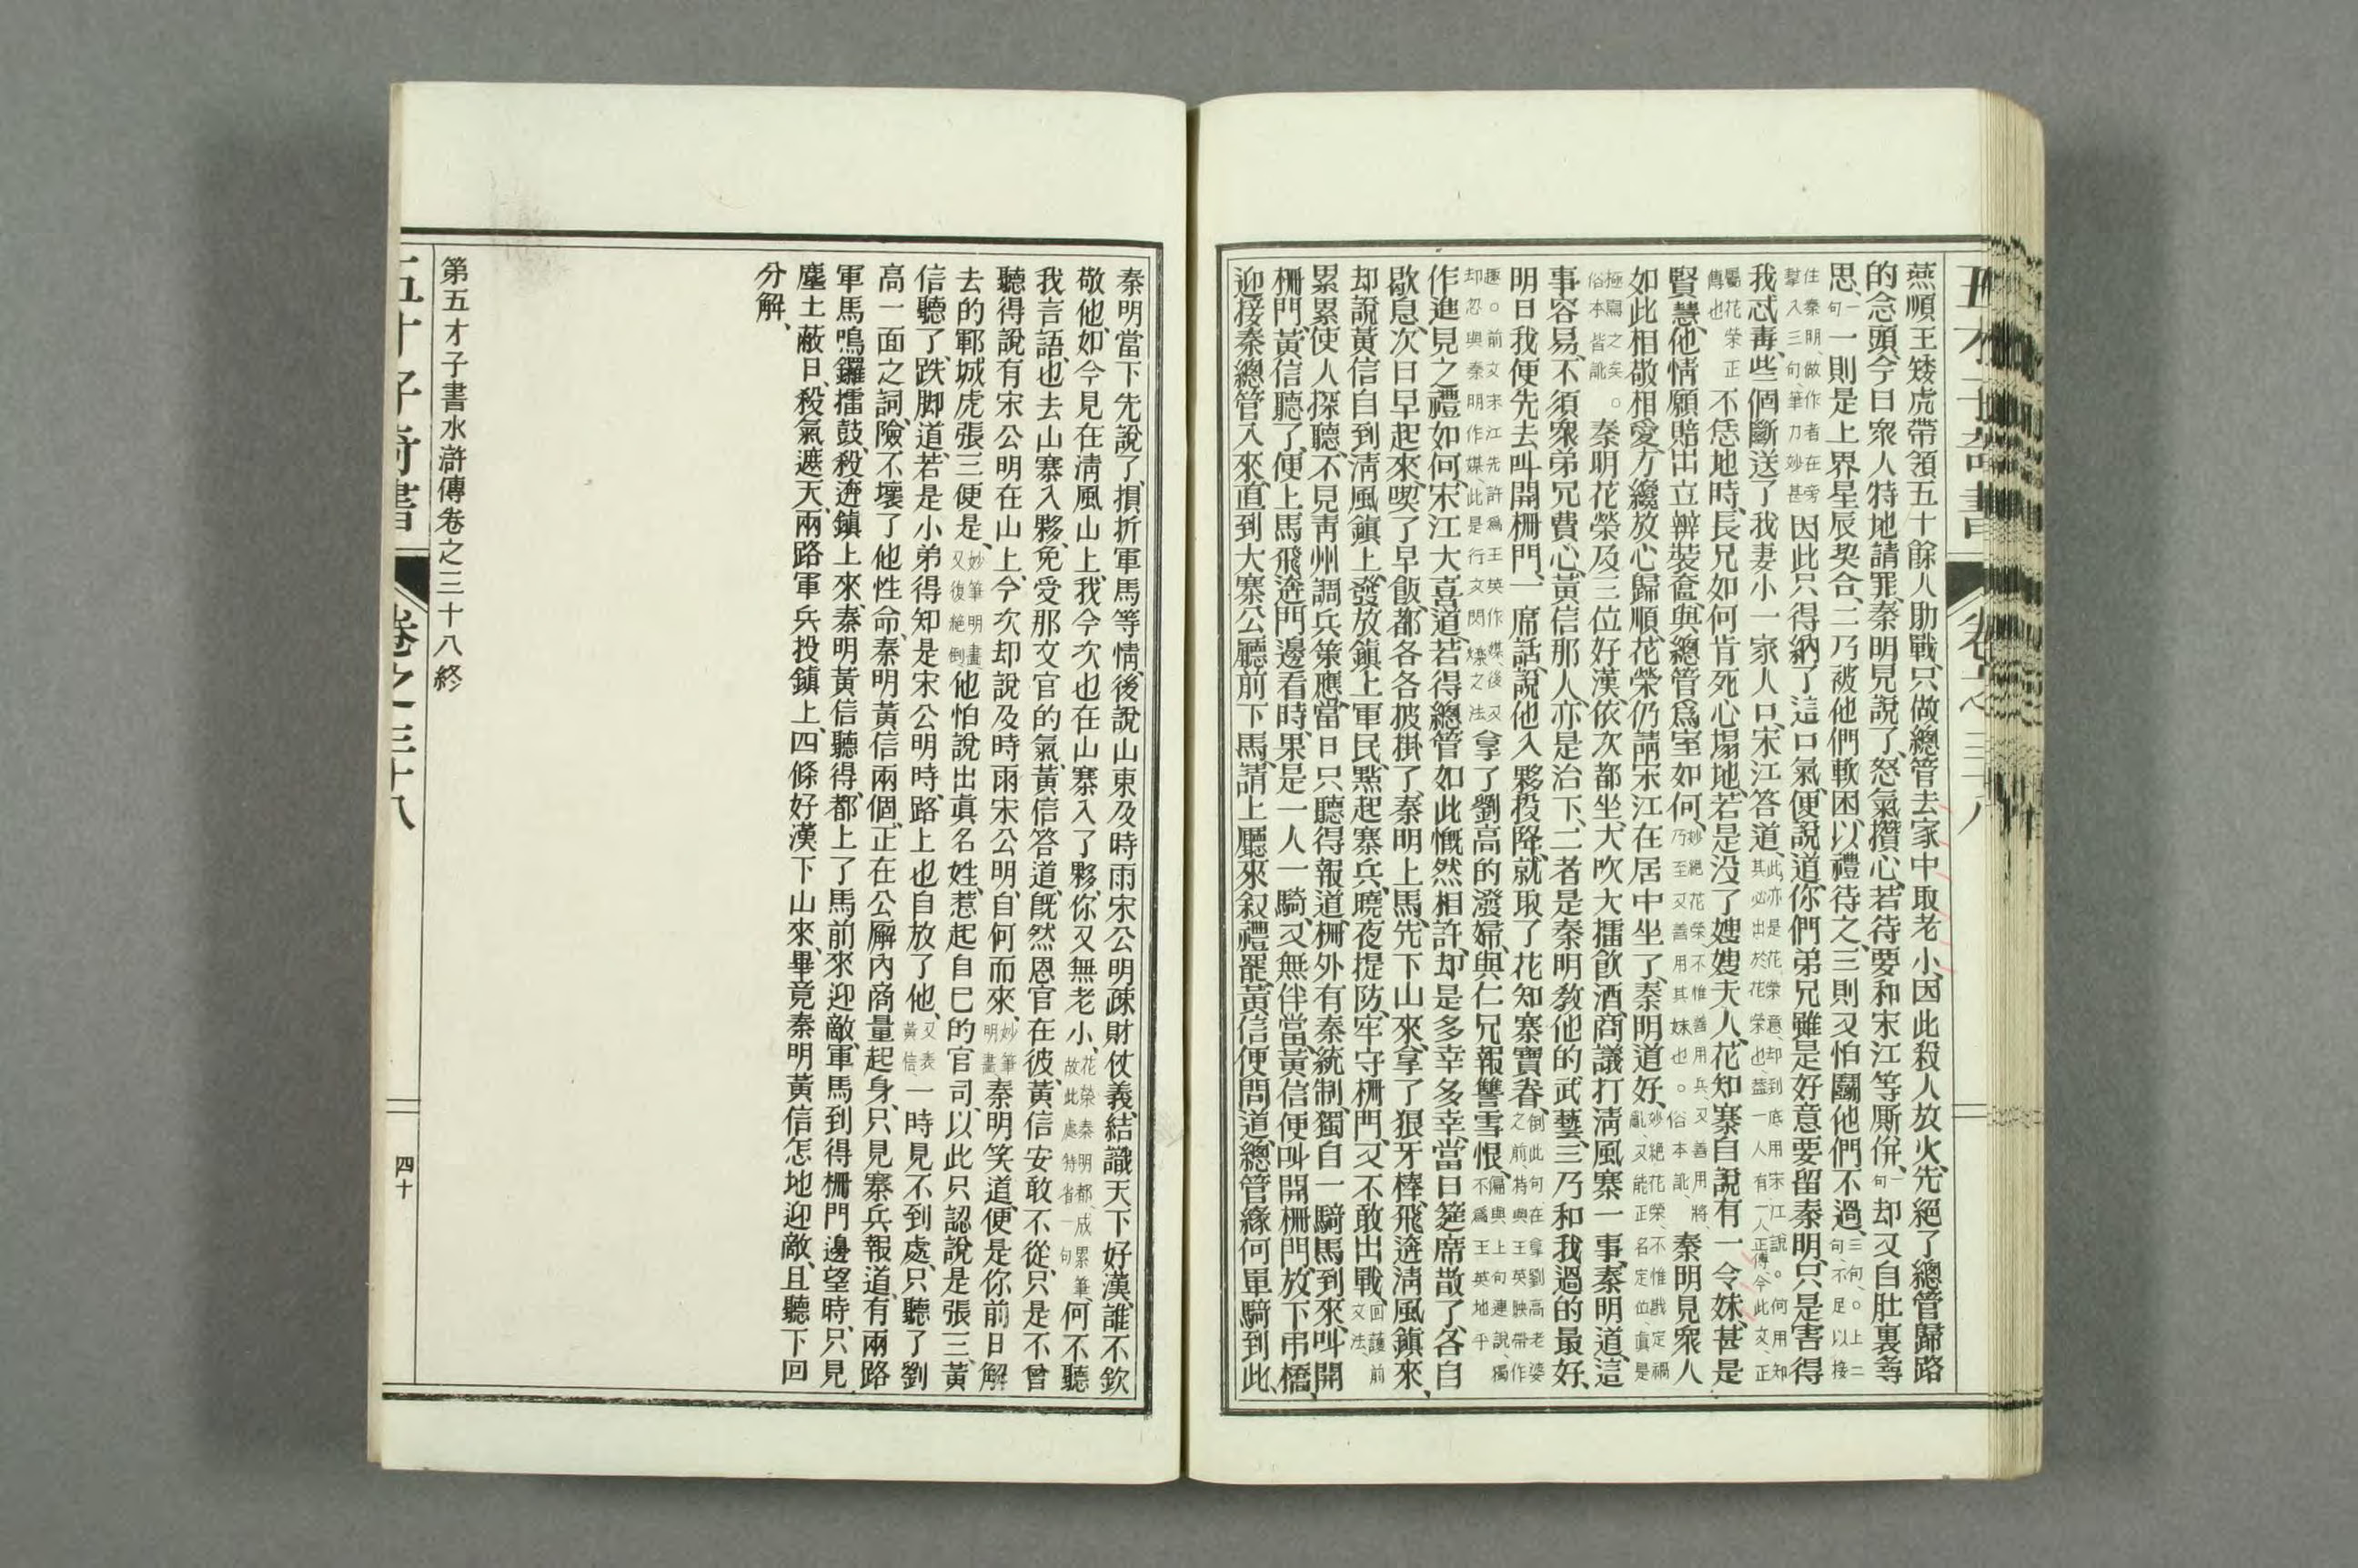 燕順王矮虎帶領五十餘人助戰、只做總管去家中取老小、因此殺人放火、先絕了總管歸路
的念頭、今日衆人特地請罪、秦明見說了、怒氣攢心、若待要和宋江等厮併、一句却又自肚裏尋
思、一句一則是上界星辰契合、二乃被他們軟困、以禮待之、三則又怕鬬他們不過、三句。上二句、不足以接
住秦明、做作者在旁攀入三句、筆力妙甚因此只得納了這口氣、便說道、你們弟兄雖是好意要留秦明、只是害得
我忒毒、些個斷送了我妻小一家人口、宋江答道、此亦是花榮意、却到底用宋江說。何用知其必出於花榮也、葢一人有一人正傳、今此文、正
屬花榮正傳也不恁地時、長兄如何肯死心塌地、若是没了嫂嫂夫人、花知寨自說有一令妹、甚是
賢慧、他情願賠出、立辦裝奩、與總管爲室如何、妙絕花榮、不惟善用兵、又善用將、乃至又善用其妹也。俗本訛、秦明見衆人
如此相敬相愛、方纔放心歸順、花榮仍請宋江在居中坐了、秦明道好、妙絕花榮、不惟戡定禍亂、又能正名定位、眞是
極寫之矣。俗本皆訛秦明花榮及三位好漢、依次都坐、大吹大擂飮酒、商議打淸風寨一事、秦明道、這
事容易、不須衆弟兄費心、黃信那人、亦是治下、二者是秦明敎他的武藝、三乃和我過的最好、
明日我便先去叫開柵門、一席話、說他入夥投降、就取了花知寨寶眷、倒此句、在拿劉高老婆之前、特與王英映帶作
趣。前文宋江先許爲王英作媒、後又却忽與秦明作媒、此是行文閃爍之法拿了劉高的潑婦、與仁兄報讐雪恨、偏與上句連說、獨不爲王英地乎
作進見之禮如何、宋江大喜道、若得總管如此慨然相許、却是多幸多幸、當日筵席散了、各自
歇息、次日早起來、喫了早飯、都各各披掛了、秦明上馬、先下山來、拿了狠牙棒、飛逩淸風鎭來、
却說黃信自到淸風鎭上、發放鎭上軍民、點起寨兵、曉夜提防、牢守柵門、又不敢出戰、回護前文法、
累累使人探聽、不見靑州調兵策應、當日只聽得報道、柵外有秦統制、獨自一騎馬到來、叫開
柵門、黃信聽了、便上馬飛逩門邊看時、果是一人一騎、又無伴當、黃信便叫開柵門、放下弔橋、
迎接秦總管入來、直到大寨公廳前下馬、請上廳來、叙禮罷、黃信便問道、總管緣何單騎到此、
秦明當下先說了、損折軍馬等情、後說山東及時雨宋公明疎財仗義、結識天下好漢、誰不欽
敬他、如今見在淸風山上、我今次也在山寨入了夥、你又無老小、花榮秦明都成累筆、故此處特省一句何不聽
我言語、也去山寨入夥、免受那文官的氣、黃信答道、旣然恩官在彼、黃信安敢不從、只是不曾
聽得說有宋公明在山上、今次却說及時雨宋公明、自何而來、妙筆明畫、秦明笑道、便是你前日解
去的鄆城虎張三便是、妙筆明畫又復絕倒、他怕說出眞名姓、惹起自己的官司、以此只認說是張三、黃
信聽了、跌脚道、若是小弟得知是宋公明時、路上也自放了他、又表黃信、一時見不到處、只聽了劉
高一面之詞、險不壞了他性命、秦明黃信兩個、正在公廨內商量起身、只見寨兵報道、有兩路
軍馬鳴鑼擂鼓、殺逩鎭上來、秦明黃信聽得、都上了馬前來迎敵、軍馬到得柵門邊望時、只見
塵土蔽日、殺氣遮天、兩路軍兵投鎭上、四條好漢下山來、畢竟秦明黃信怎地迎敵、且聽下回
分解、
第五才子書水滸傳卷之三十八終
卷之三十八
四十